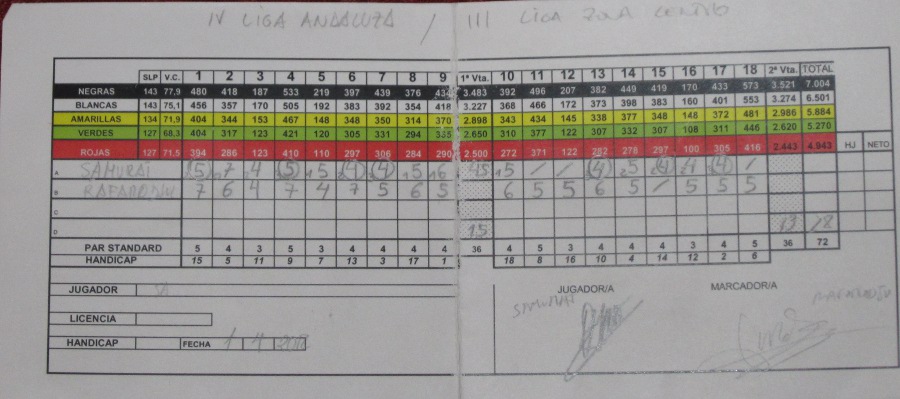 IV LIGA ANDALUZA / III LIGA ZONA CENTRO
SLP V.C. 1 2 3 4 5 6 7 8 9 1ª Vta. 10 11 12 13 14 15 16 17 18 2ª Vta. TOTAL
NEGRAS 143 77,9 480 418 187 533 219 397 439 376 434 3.483 392 496 207 382 449 419 170 433 573 3.521 7.004
BLANCAS 143 75,1 456 357 170 505 192 383 392 354 418 3.227 368 466 172 373 398 383 160 401 553 3.274 6.501
AMARILLAS 134 71,9 404 344 153 467 148 348 350 314 370 2.898 343 434 145 338 377 348 148 372 481 2.986 5.884
VERDES 127 68,3 404 317 123 421 120 305 331 294 335 2.650 310 377 122 307 332 307 108 311 446 2.620 5.270
ROJAS 127 71,5 394 286 123 410 110 297 306 284 290 2.500 272 371 122 282 278 297 100 305 416 2.443 4.943 HJ NETO
A SAMURAI 5 7 4 5 5 4 4 5 6 45 5 / / 4 5 4 4 4 /
B 7 6 4 7 4 7 5 6 5 6 5 5 6 5 / 5 5 5
C
D 15 13 /8
PAR STANDARD 5 4 3 5 3 4 4 4 4 36 4 5 3 4 4 4 3 4 5 36 72
HANDICAP 15 5 11 9 7 13 3 17 1 18 8 16 10 4 14 12 2 6
JUGADOR JUGADOR/A MARCADOR/A
SAMURAI
LICENCIA
HANDICAP FECHA 1 4